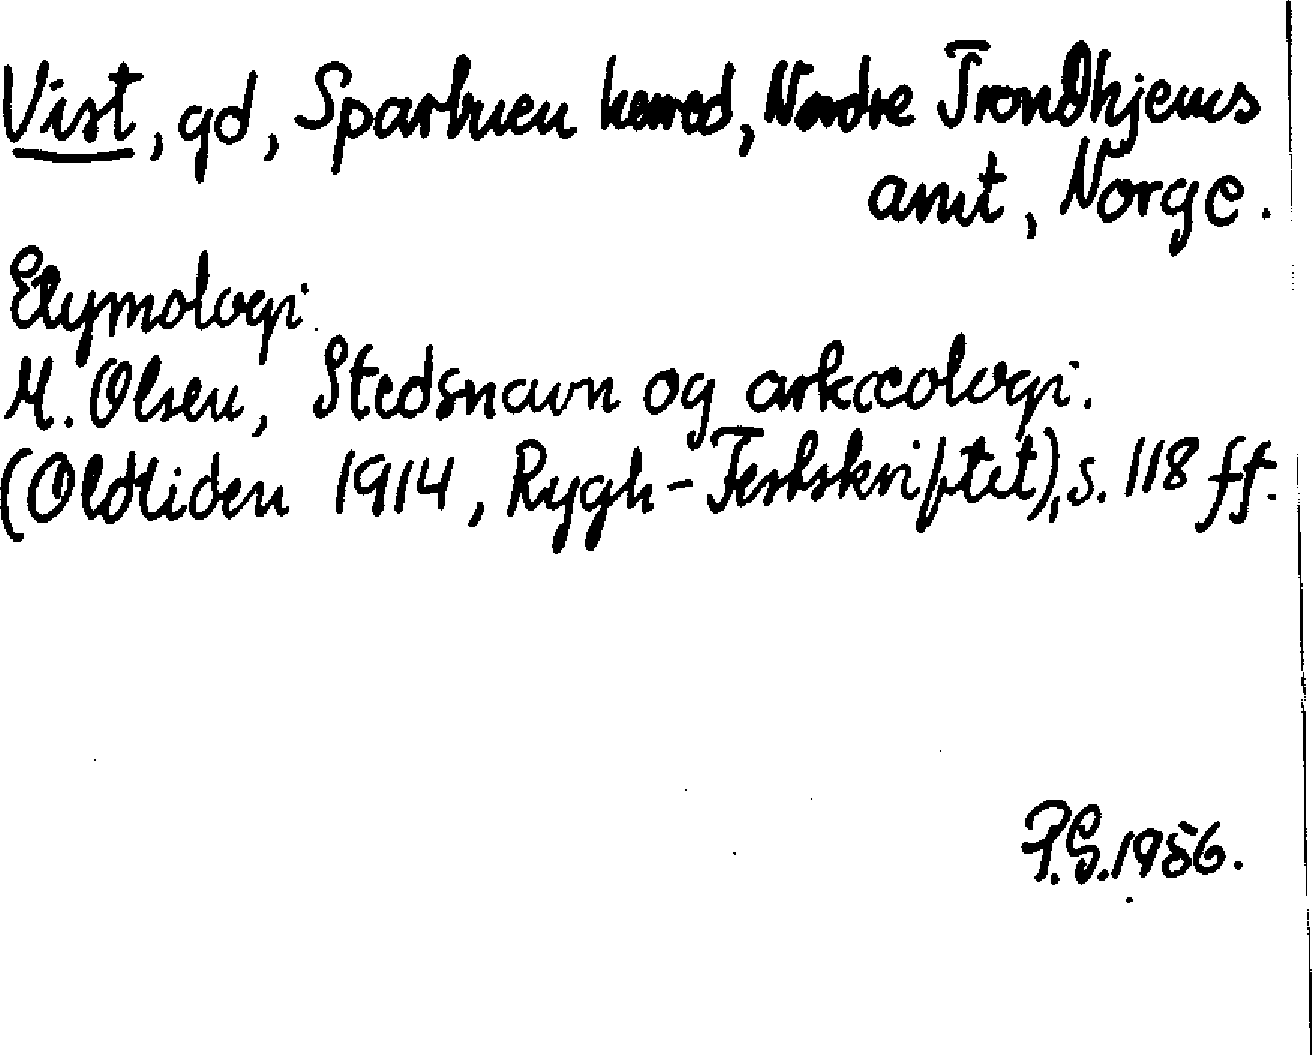 Vist, gd, Sparbuen herred, Nordre Trondhjems
amt, Norge.
Etymologi.
M. Olsen, Stedsnavn og arkæologi.
(Oldtiden 1914, Rygh-Festskriftet), s. 118 ff.
P.S. 1956.